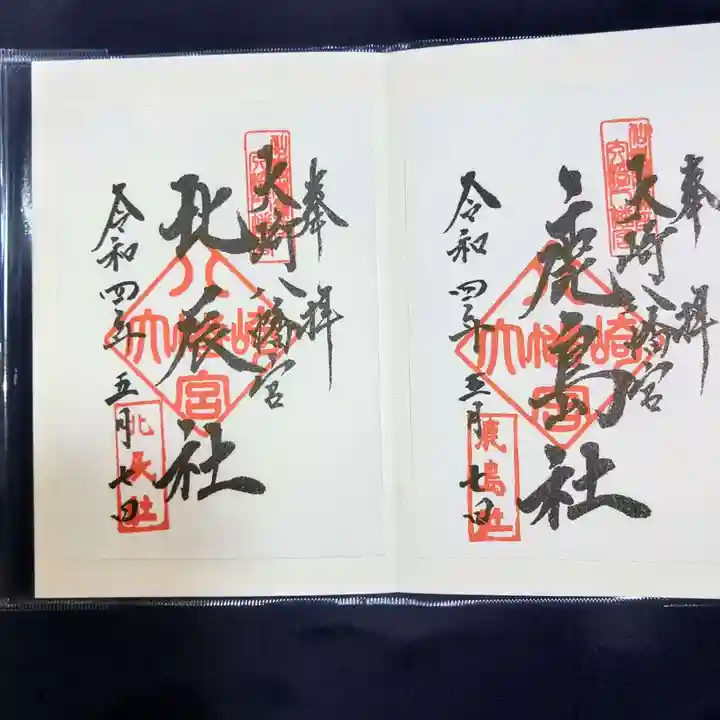 奉拝
大崎八幡宮
鹿島社
令和四年五月七日
鹿島社
奉拝
大崎八幡宮
北辰社
令和四年五月七日
北辰社